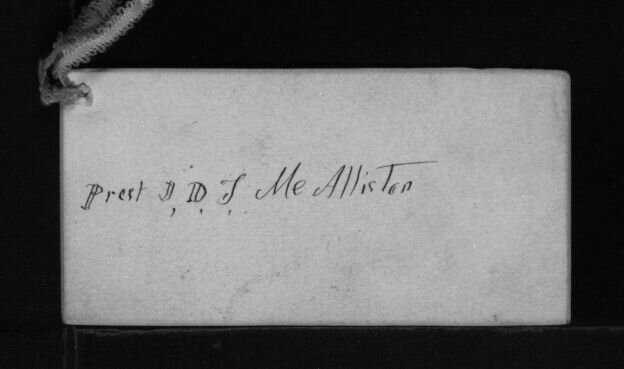 Prest D, D. J. Mc Alliston